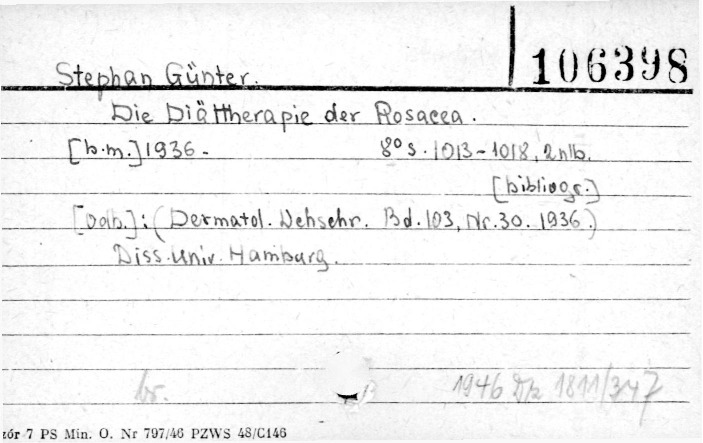 106398
Stephan Günter.
Die Diättherapie der Rosacea.
[b.m.] 1936. 8° s. 1013-1018, 2 nlb.
[bibliogr.]
[Odb.]: (Dermatol. Wchschr. Bd. 103, Nr. 30. 1936.)
Diss. Univ. Hamburg.
br. 1946 Dz 1811/347
zór 7 PS Min. O. Nr 797/46 PZWS 48/C146